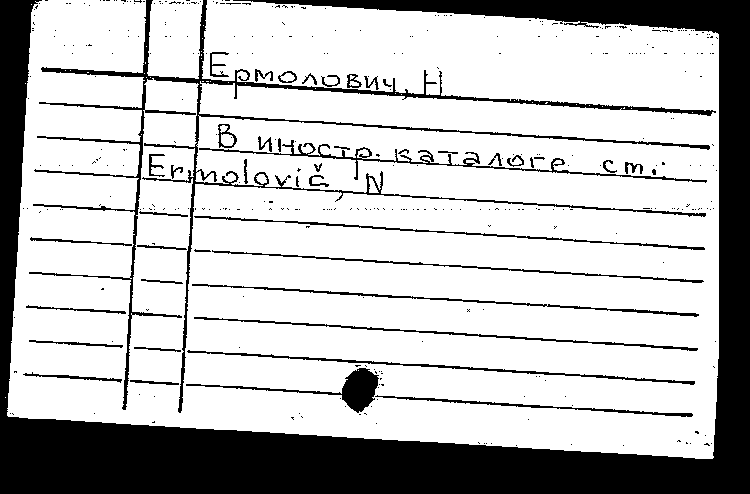 Ермолович, Н
В иностр. каталоге см.:
Ermolovič, N